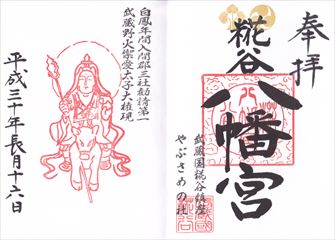 奉拝
糀谷
八幡宮
武蔵国糀谷鎮座
やぶさめの社
白鳳年間入間郡三社勧請第一
武蔵野火禦愛太子大権現
平成三十年長月十六日